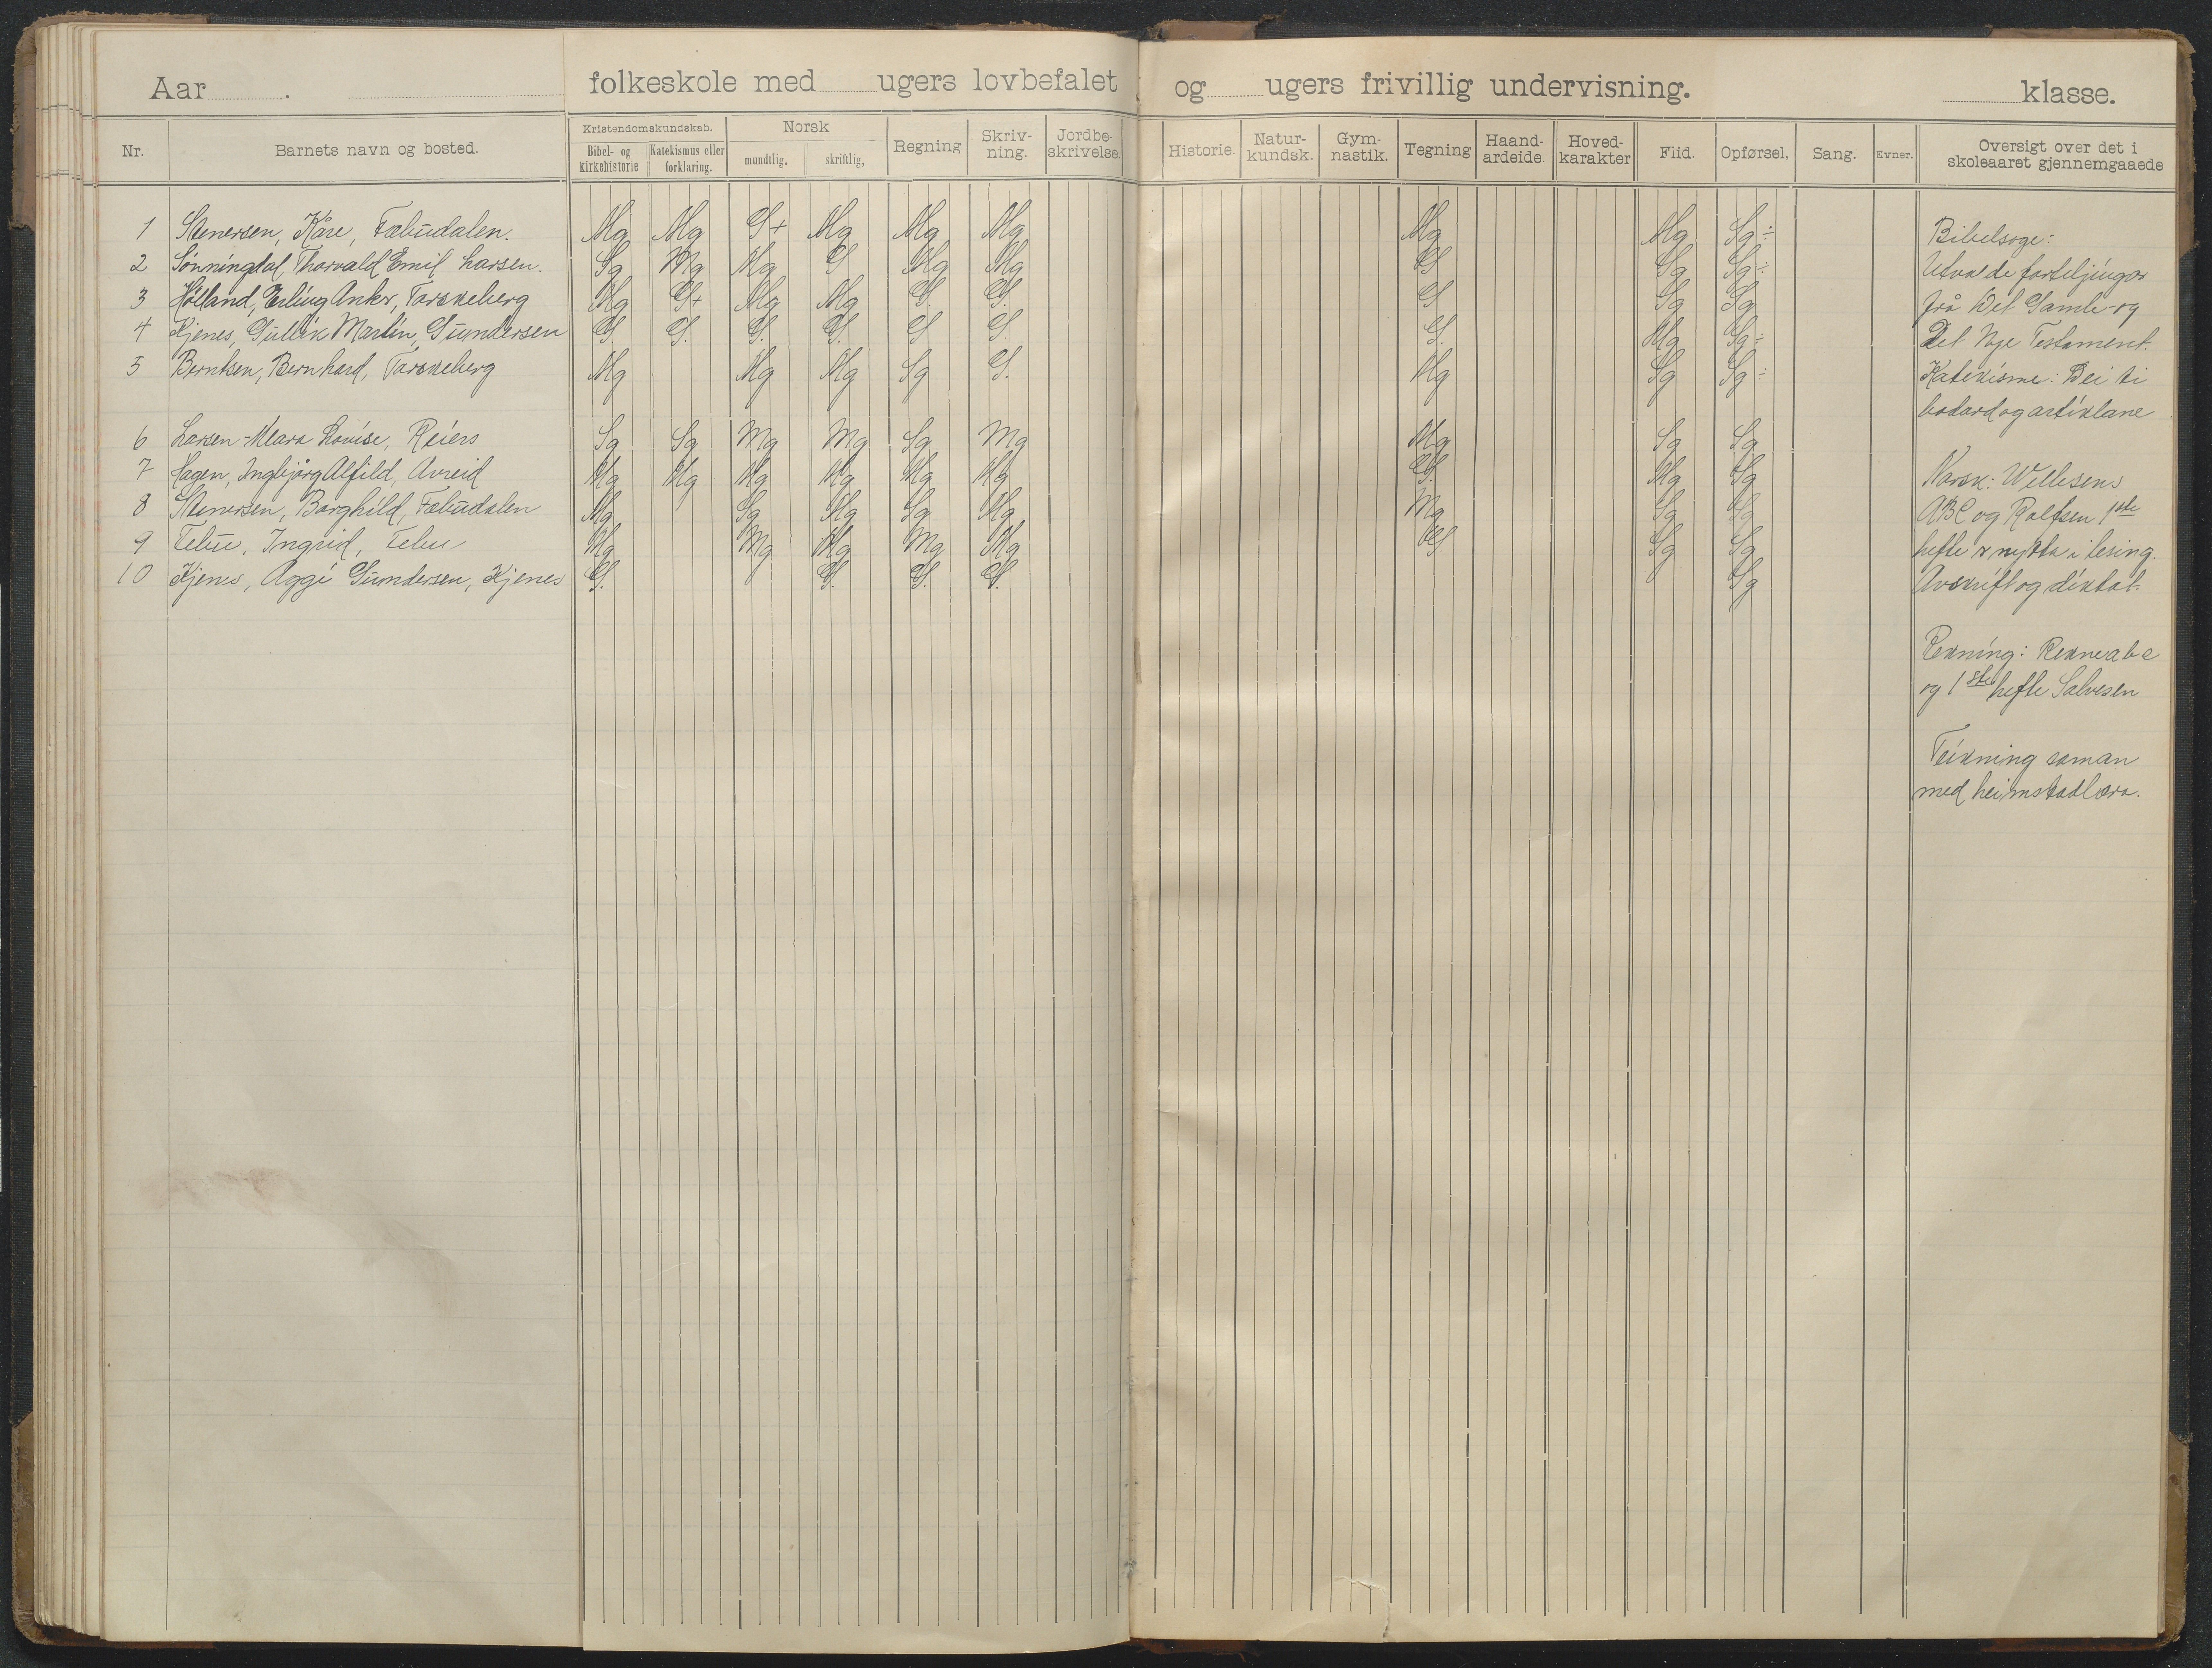 Aar . folkeskole med ugers lovbefalet og ugers frivillig undervisning. klasse.
Nr. Barnets navn og bosted. Kristendomskundskab. Bibel- og kirkehistorie Katekismus eller forklaring. Norsk mundtlig. skriftlig, Regning Skriv-ning. Jordbe-skrivelse. Historie. Natur-kundsk. Gym-nastik. Tegning Haand-arbeide. Hoved-karakter Flid. Opførsel. Sang. Evner. Oversigt over det i skoleaaret gjennemgaaede
1 Stenersen, Kåre, Fæbudalen. Mg Mg G+ Mg Mg Mg Mg Mg Sg÷
2 Sønningdal, Thorvald Emil Larsen. Sg Mg Mg G Mg Mg G Sg Sg÷
3 Hølland, Erling Anker, Torskeberg Mg G+ Mg Mg G. G. G Sg Sg
4 Kjenes, Gullik Martin, Gundersen G. G. G. G. G G G. Mg Sg÷
5 Berntsen, Bernhard, Torskeberg Mg Mg Mg Sg G. Mg Sg Sg÷
6 Larsen - Klara Lovise, Reiers Sg Sg Mg Mg Sg Mg Mg Sg Sg
7 Hagen, Ingebjørg Alfild, Avreid Mg Mg Mg Mg Mg Mg G. Mg Sg
8 Stenersen, Borghild, Fæbudalen Mg Sg Mg Sg Mg Mg Sg Sg
9 Tebu, Ingrid, Tebu Mg Mg Mg Mg Mg G. Sg Sg
10 Kjenes, Aggi Gundersen, Kjenes G. G. G. G. Sg
Bibelsoge:
Utvalde forteljingar
frå Det Gamle og
Det Nye Testament.
Katekisme: Dei ti
bodord og artiklane
Norsk: Wellesens
ABC og Rolfsen 1ste
hefte er nytta i lesing.
Avskrift og diktat.
Rekning: Rekneabc
og 1ste hefte Salvesen
Teikning saman
med heimstadlæra.